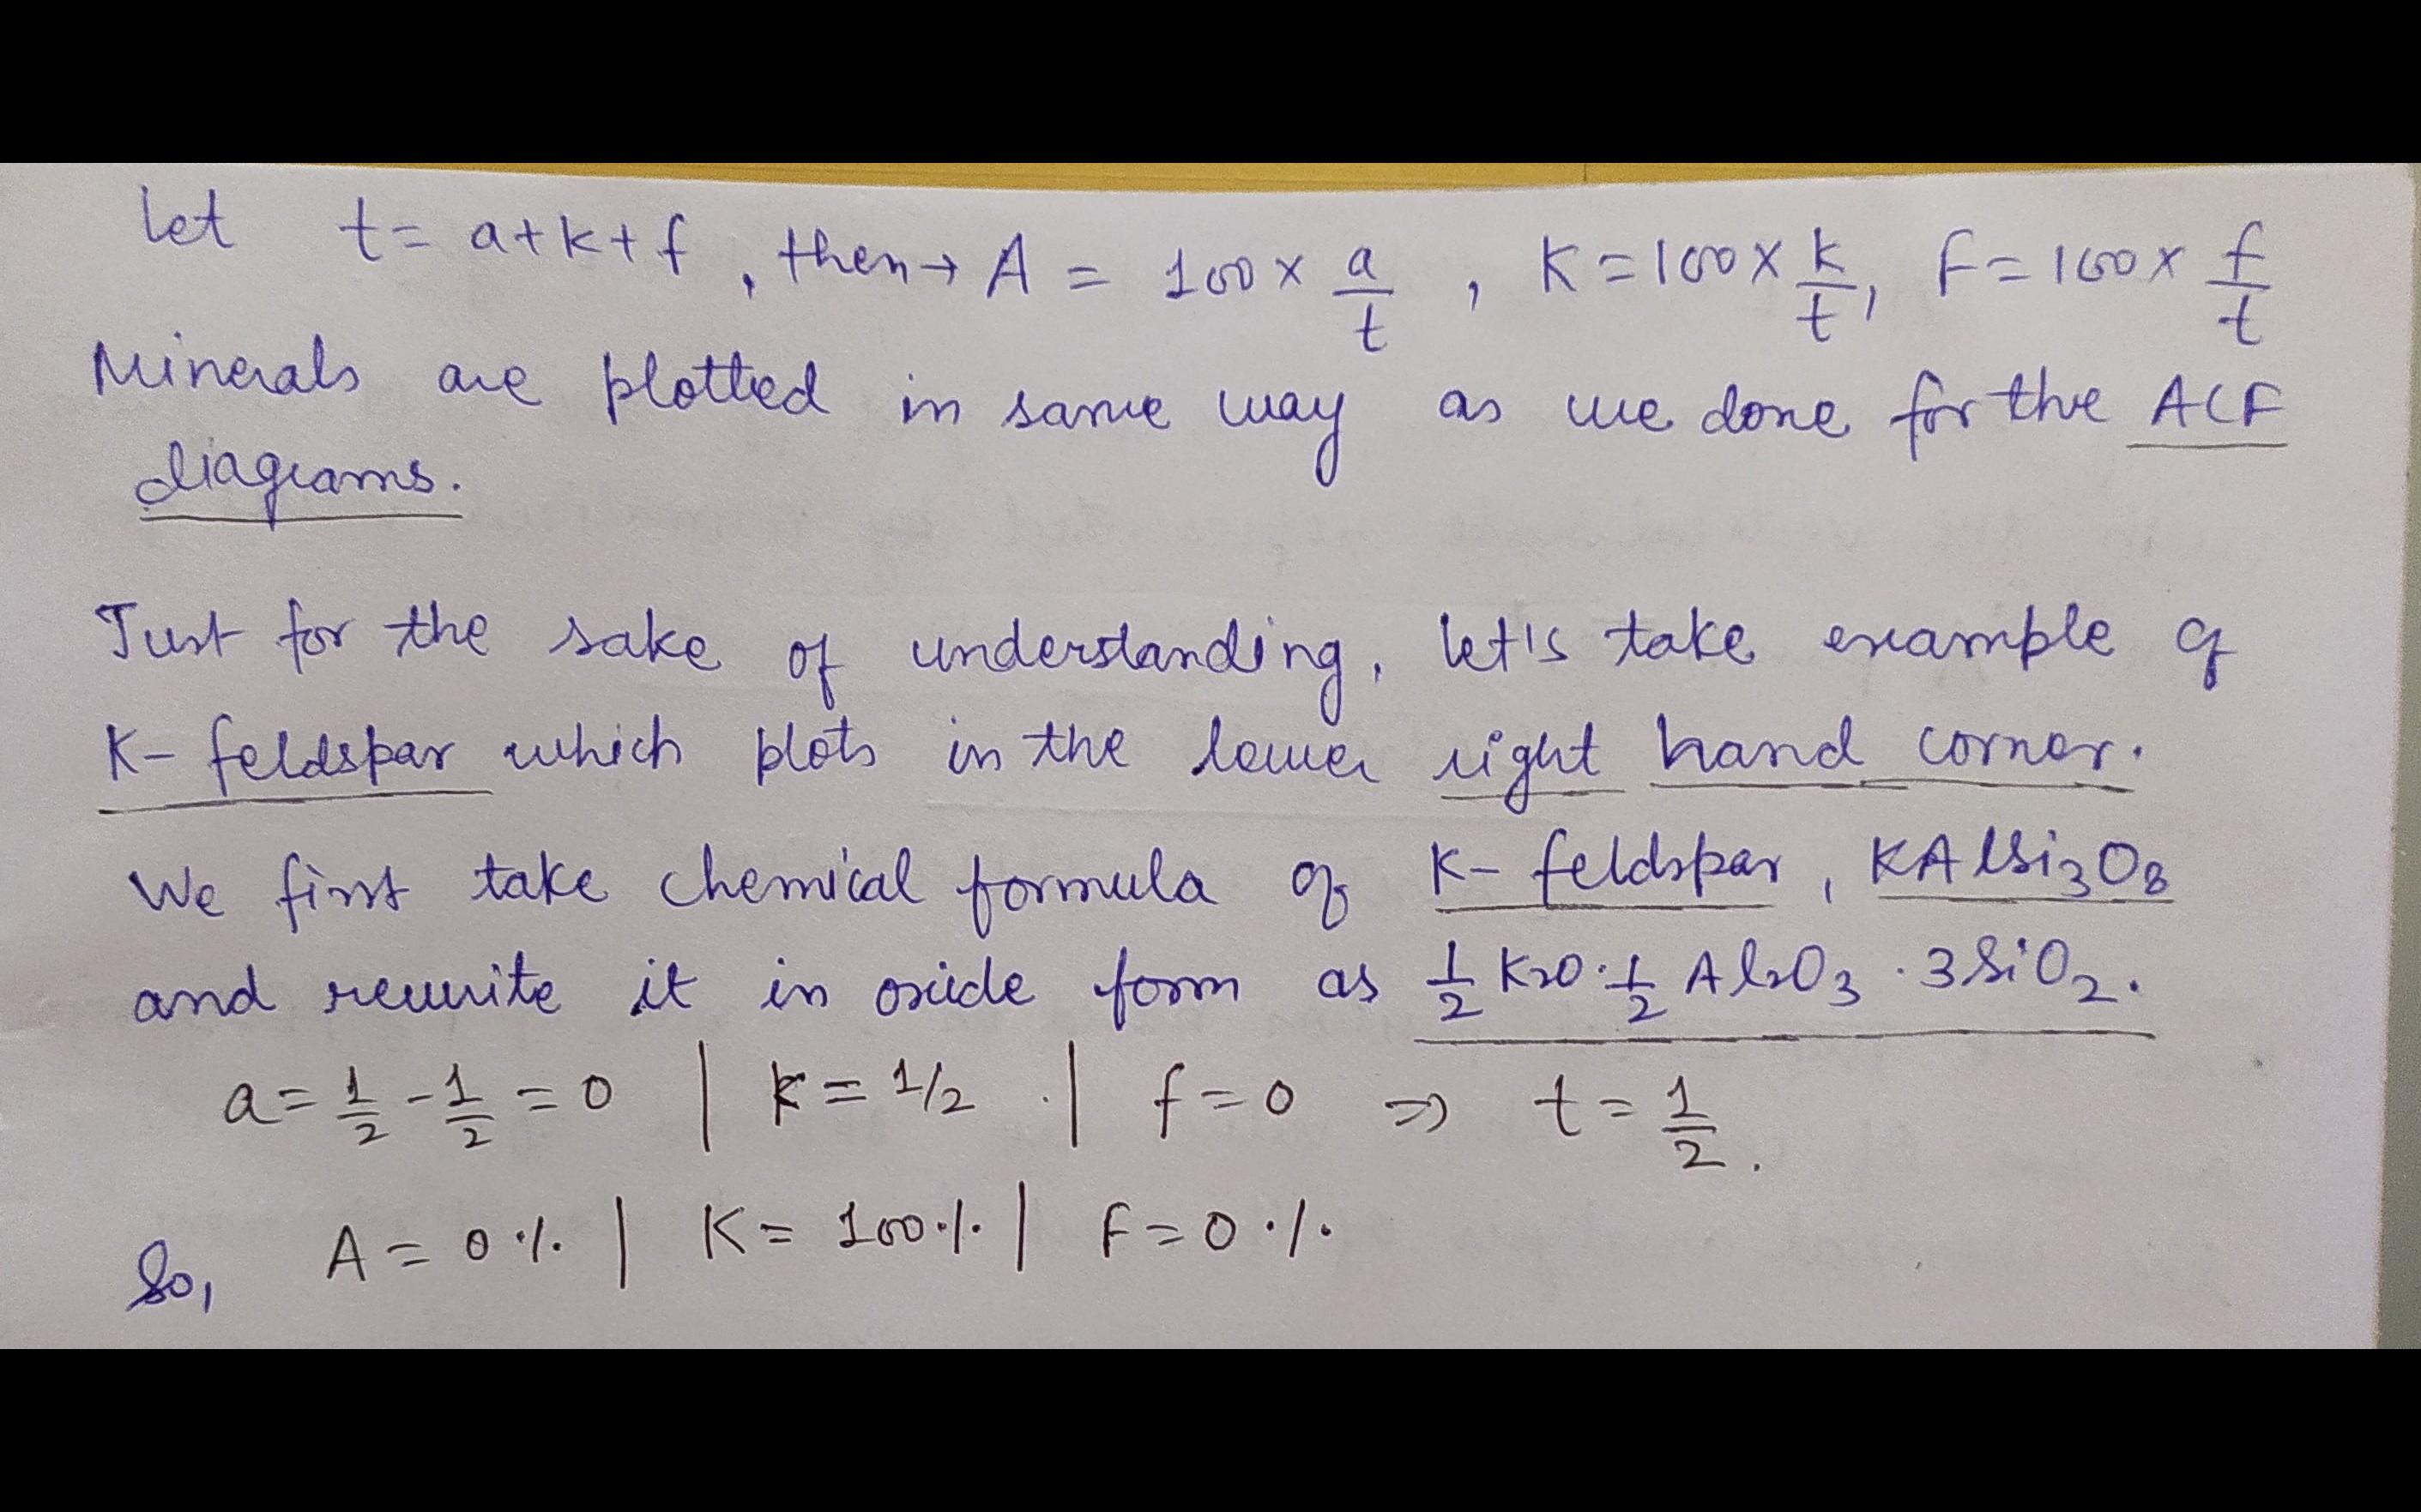 let t = a+k+f, then → A = 100 x a/t, K = 100 x k/t, F = 100 x f/t
Minerals are plotted in same way as we done for the ACF
diagrams.
Just for the sake of understanding, let's take example of
K- feldspar which plots in the lower right hand corner.
We first take chemical formula of K- feldspar, KAlSi₃O₈
and rewrite it in oxide form as 1/2 K₂O · 1/2 Al₂O₃ · 3SiO₂.
a = 1/2 - 1/2 = 0 | k = 1/2 . | f = 0 ⇒ t = 1/2 .
So, A = 0 % | K = 100 % | F = 0 %